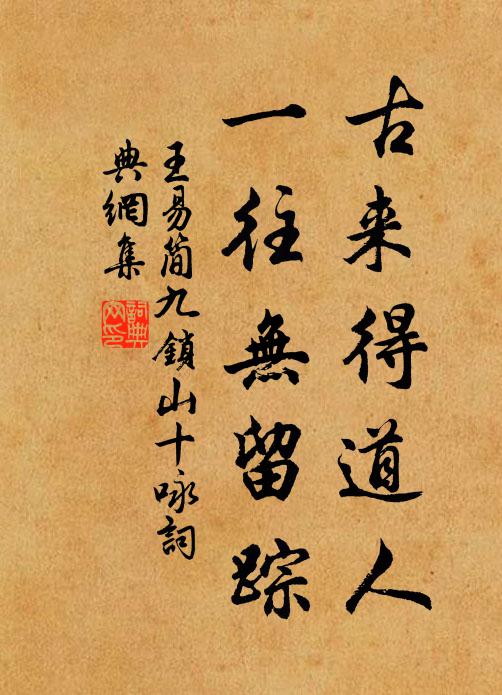 古来得道人
一往無留踪
王易简九鎖山十咏詞
典網集
詞典网印